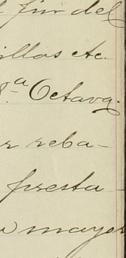 fin del
illas etc.
8.ª Octava.
r reba-
presta-
mayor